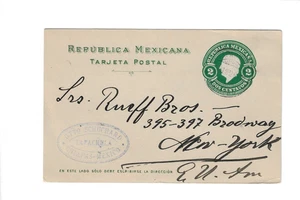 REPUBLICA MEXICANA
TARJETA POSTAL
REPUBLICA MEXICANA
2 2
DOS CENTAVOS
Srs. Rueff Bros.-
395-397 Broadway
New-York
E. U. Am
EN ESTE LADO SÓLO DEBE ESCRIBIRSE LA DIRECCIÓN